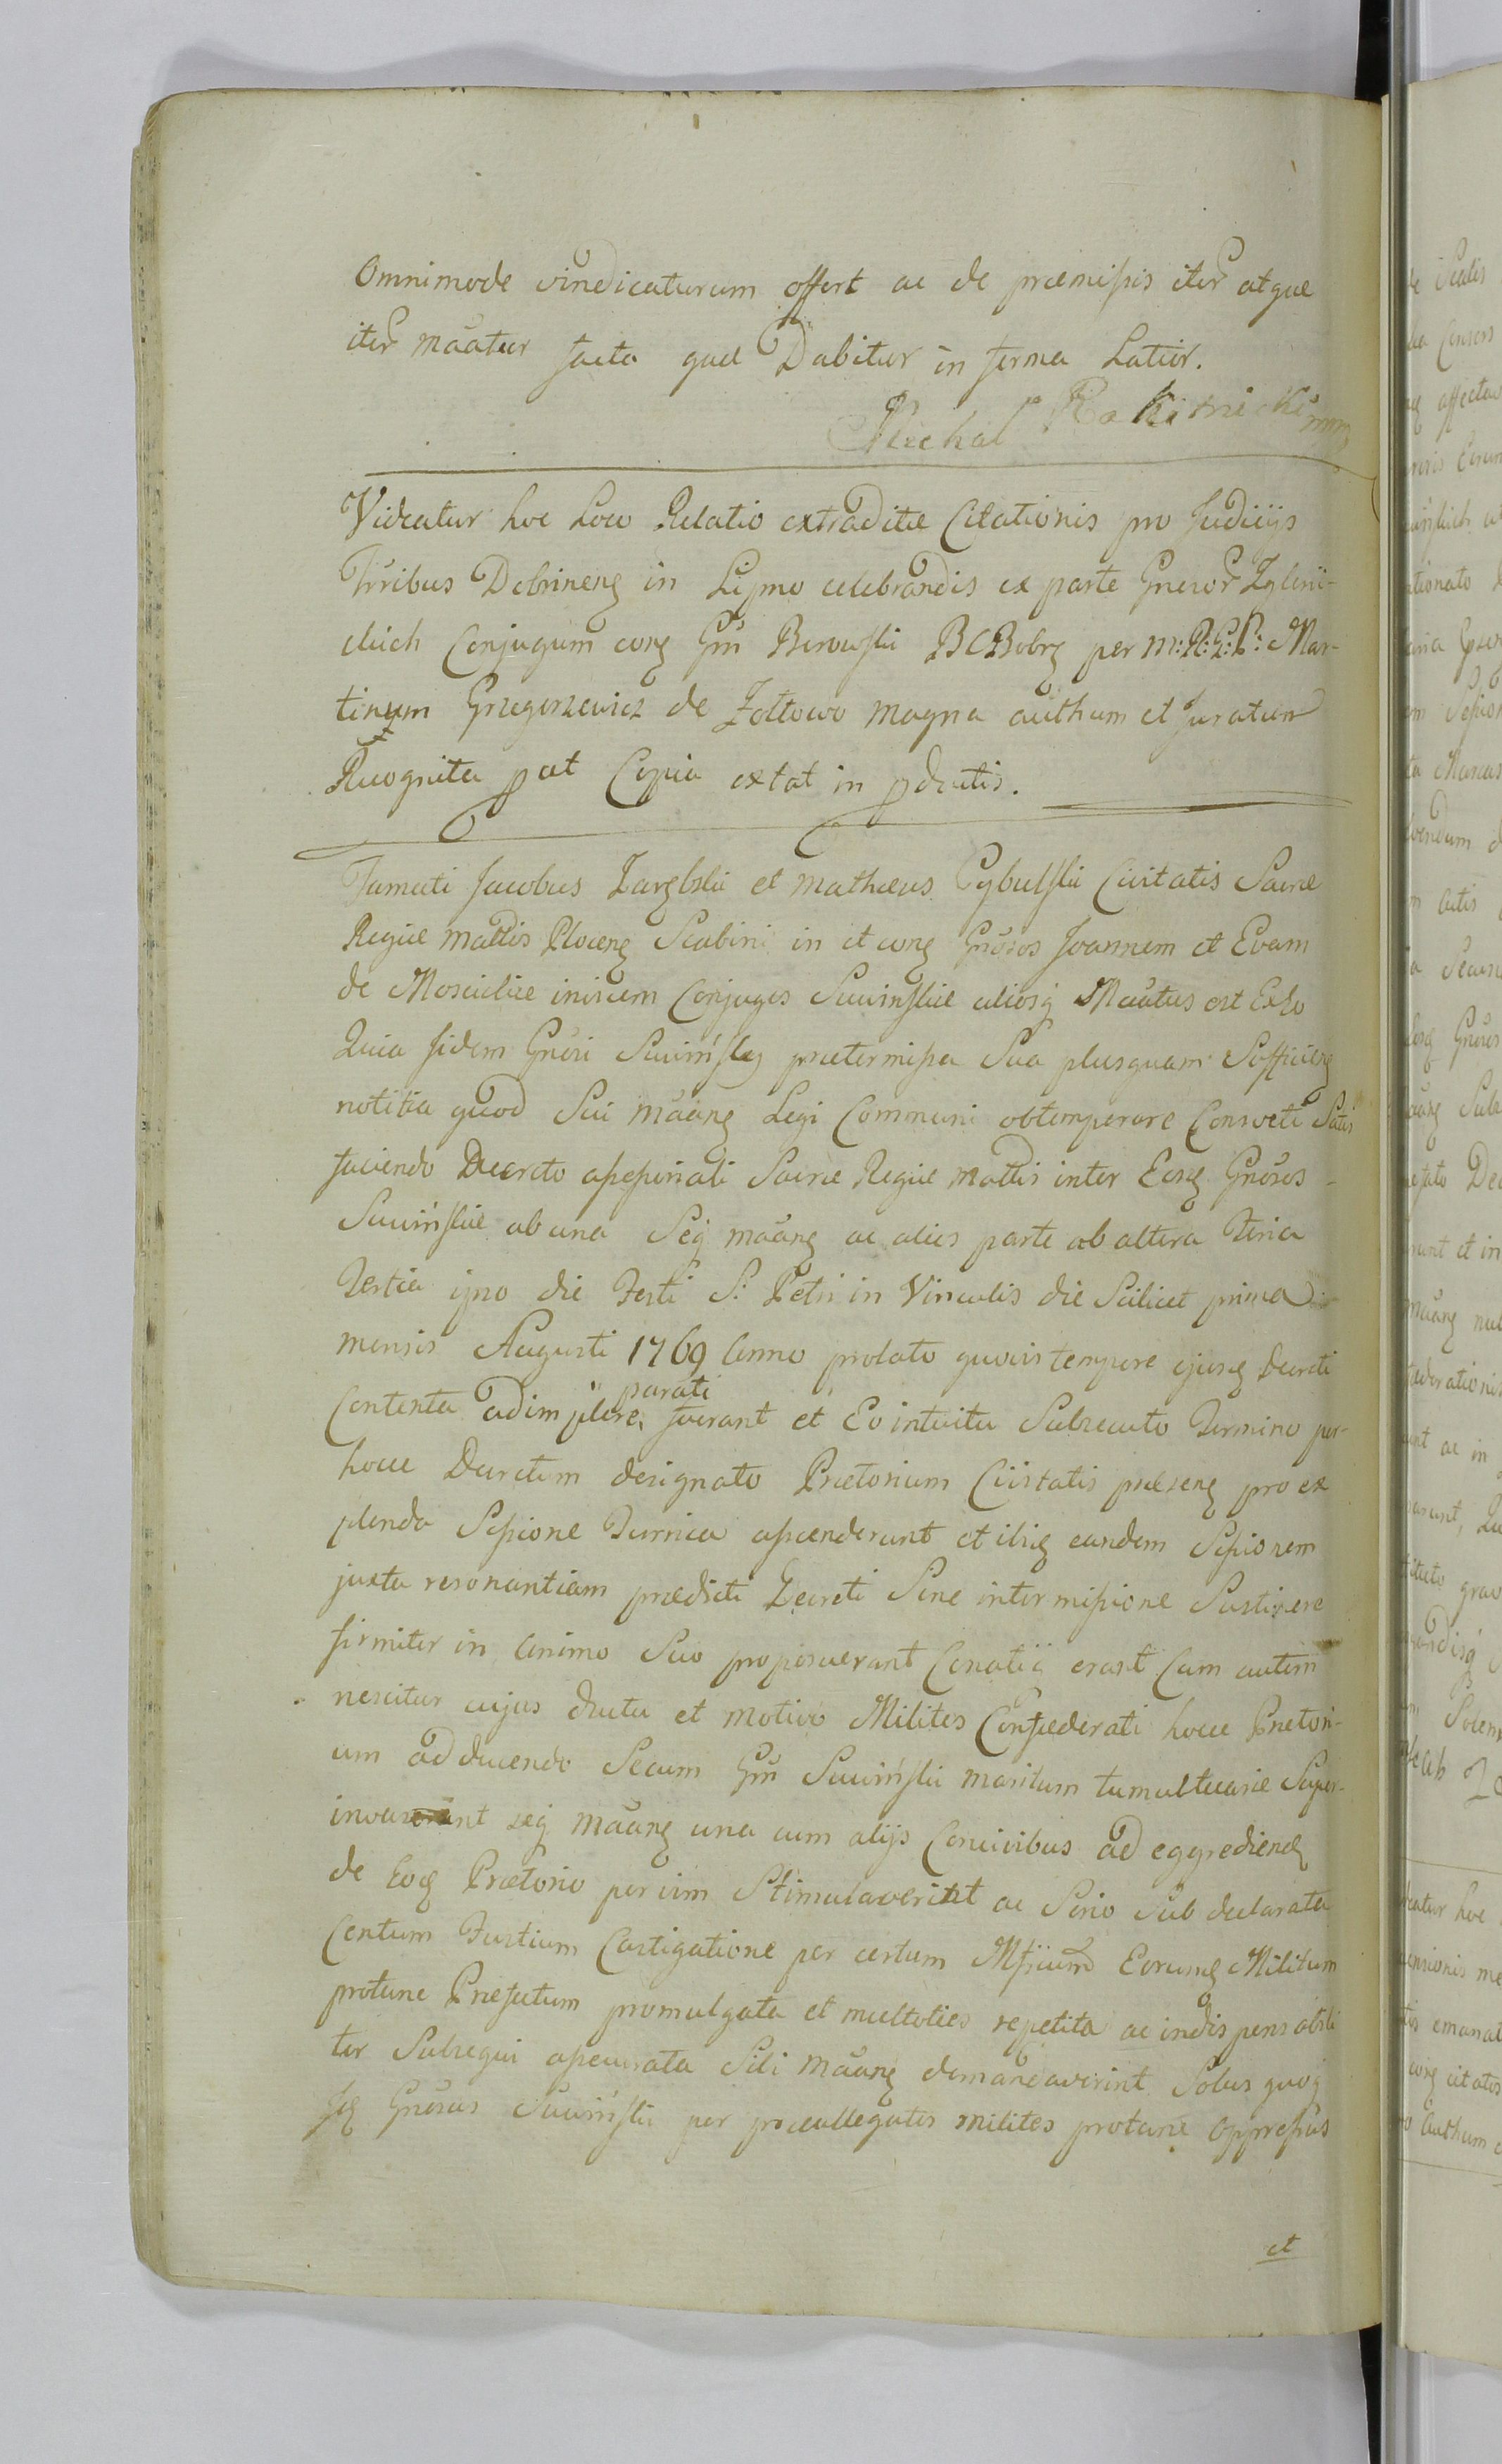 Omnimode vindicaturum offert ac de præmissis iter atque
iter mãatur facta quæ Dabitur in forma Latior.
Michał Rokitnicki mm
Videatur hoc Loco Relatio extraditæ Citationis pro Judiciis
Trribus Dobrineng in Lipno celebrandis ex parte Gneror Zglini-
ckich Conjugum cong Gm Borowski BCBobrg per M:R:G:P: Mar-
tinum Grzegorzewicz de Zołtowo Magna authum et Juratum
Recognita put Copia extat in pductis.
Famati Jacobus Zarębski et Mathæus Cybulski Civitatis Sacræ
Regiæ Mattis Ploceng Scabini in et cong Gnõsos Joannem et Evam
de Moscickie invicem Conjuges Suwinskie aliosq Mãatus est Exho
Quia Iidem Gnõsi Suwińscy prætermissa Sua plusquam Sufficieng
notitia quod Sui mãang Legi Communi obtemperare Consveti Satis
faciendo Decreto assessoriali Sacræ Regiæ Mattis inter Eosq Gnõsos
Suwińskie ab una Seq mãang ac alios parte ab altera Feria
Tertia ipso die Festi S: Petri in Vinculis die Scilicet prima
mensis Augusti 1769 Anno prolato quovis tempore ejusq Decreti
Contenta adimplere parati fuerant et Eo intuitu Subsecuto Termino per
hocce Decretum designato Prætorium Civitatis præseng pro ex
plenda Sessione Turrica ascenderunt et ibiq eandem Sessionem
juxta resonantiam prædicti Decreti Sine intermissione Sustinere
firmiter in animo Suo proposuerant Conatiq erant Cum autem
nescitur cujus ductu et motivo Milites Confæderati hocce Prætori-
um adducendo Secum Gm Suwiński maritum tumultuarie Super-
invaserint seq mãang una cum alijs Concivibus ad eggrediendg
de Eoq Prætorio per vim Stimulaverint ac Serio Sub declarata
Centum Fustium Castigatione per certum Eorumq Militum
protunc Præfectum promulgata et multoties repetita ac indispensabili
ter Subsequi assecurata Sibi mãang demandaverint Solus quoq
Iq Gnõsus Suwiński per præallegatos milites protunc oppressus
et